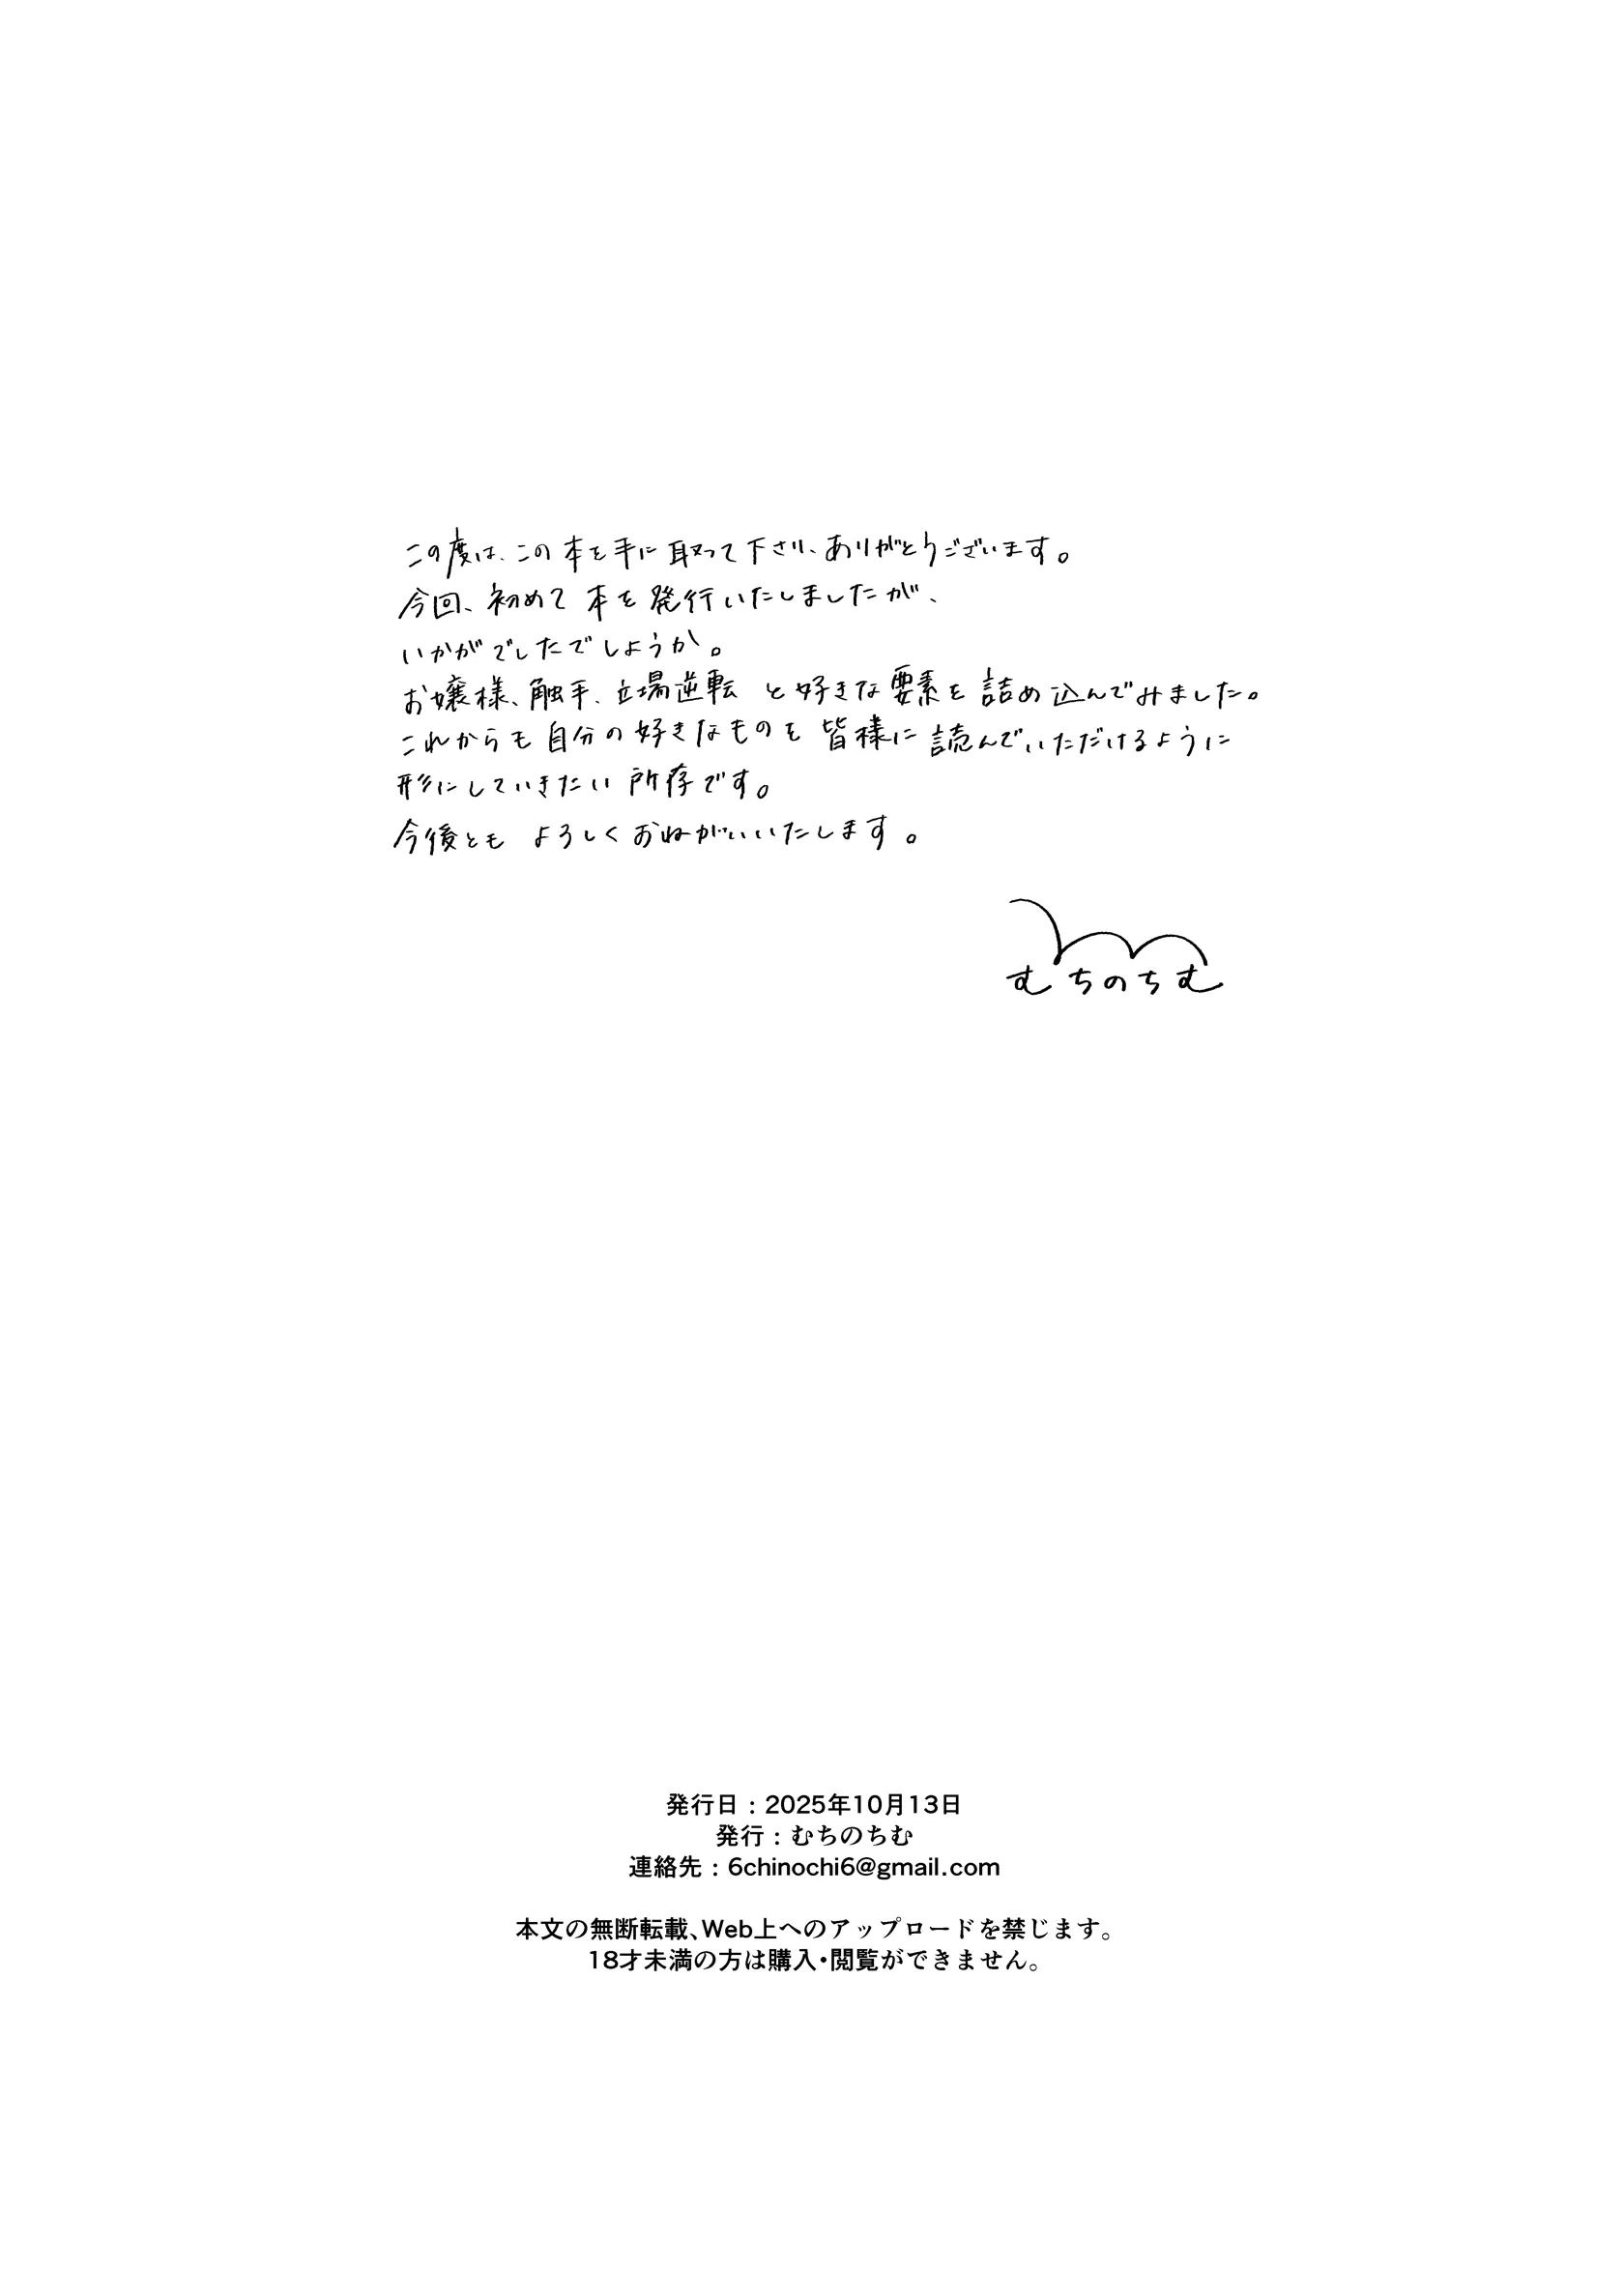 この度は、この本を手に取って下さり、ありがとうございます。
今回、初めて本を発行いたしましたが、
いかがでしたでしょうか。
お嬢様、触手、立場逆転 と好きな要素を詰め込んでみました。
これからも自分の好きなものを皆様に読んでいただけるように
形にしていきたい所存です。
今後とも よろしくおねがいいたします。
むちのちむ
発行日：2025年10月13日
発行：むちのちむ
連絡先：6chinochi6@gmail.com
本文の無断転載、Web上へのアップロードを禁じます。
18才未満の方は購入・閲覧ができません。